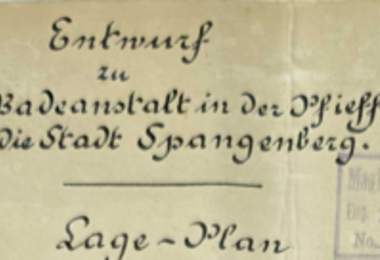 Entwurf
zu
Badeanstalt in der Pfieff
die Stadt Spangenberg.
Lage-Plan
No.